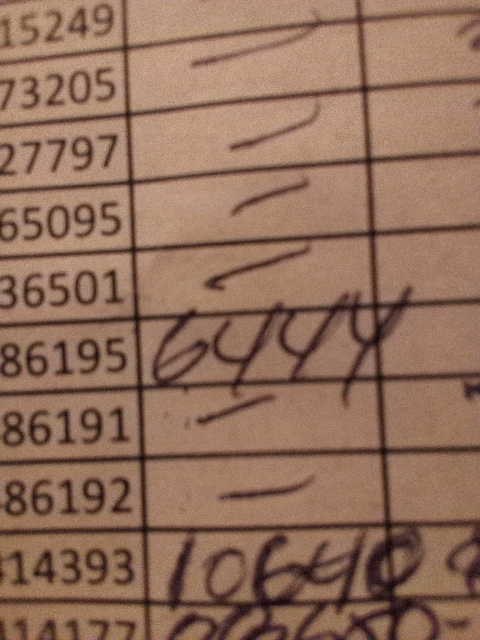 15249 —
73205 —
27797 —
65095 —
36501 —
86195 6444
86191 —
86192 —
14393 10640